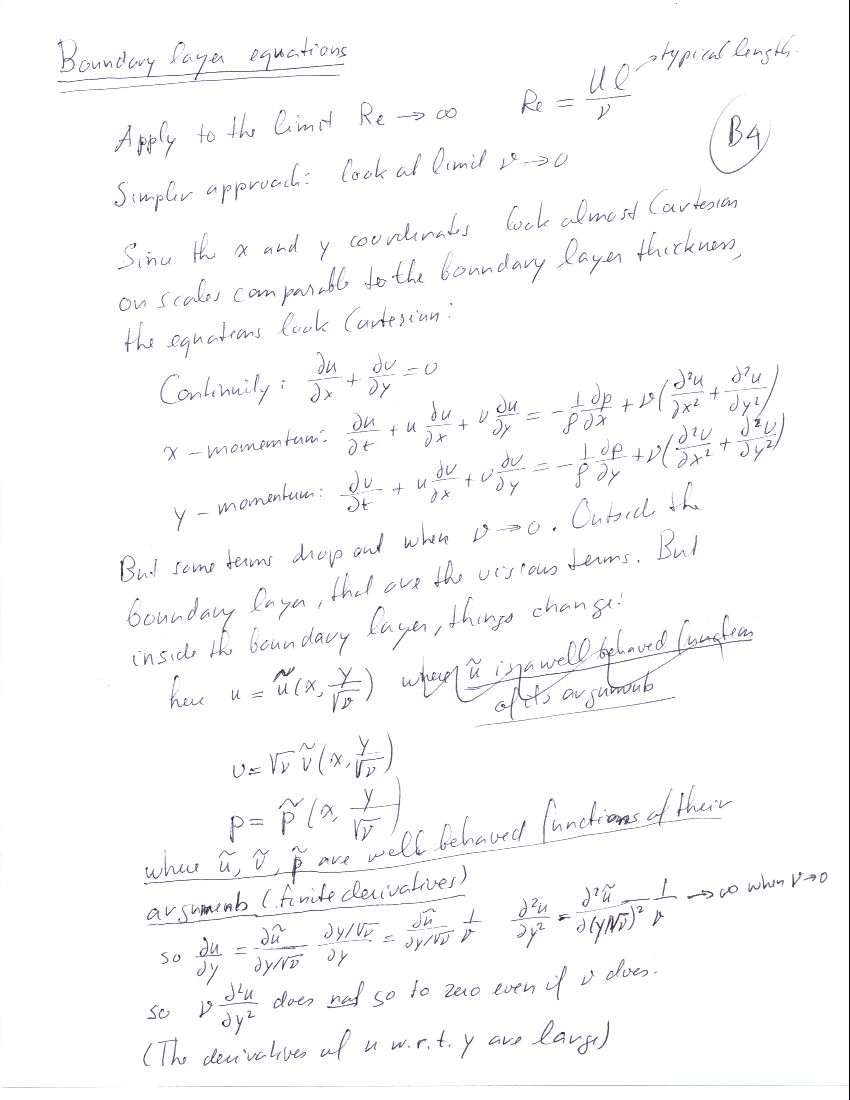 Boundary layer equations
Apply to the limit Re → ∞   Re = Uℓ/ν → typical length.
B4
Simpler approach: look at limit ν → 0
Since the x and y coordinates look almost Cartesian
on scales comparable to the boundary layer thickness,
the equations look Cartesian:
Continuity: ∂u/∂x + ∂v/∂y = 0
x – momentum: ∂u/∂t + u ∂u/∂x + v ∂u/∂y = – 1/ρ ∂p/∂x + ν(∂²u/∂x² + ∂²u/∂y²)
y – momentum: ∂v/∂t + u ∂v/∂x + v ∂v/∂y = – 1/ρ ∂p/∂y + ν(∂²v/∂x² + ∂²v/∂y²)
But some terms drop out when ν → 0. Outside the
boundary layer, that are the viscous terms. But
inside the boundary layer, things change:
here u = ũ(x, y/√ν) where ũ is a well behaved function
of its arguments
v = √ν ṽ(x, y/√ν)
p = p̃(x, y/√ν)
where ũ, ṽ, p̃ are well behaved functions of their
arguments (finite derivatives)
so ∂u/∂y = ∂ũ/∂y/√ν ∂y/√ν/∂y = ∂ũ/∂y/√ν 1/ν   ∂²u/∂y² = ∂²ũ/∂(y/√ν)² 1/ν → ∞ when ν → 0
so ν ∂²u/∂y² does not go to zero even if ν does.
(The derivatives of u w.r.t. y are large)